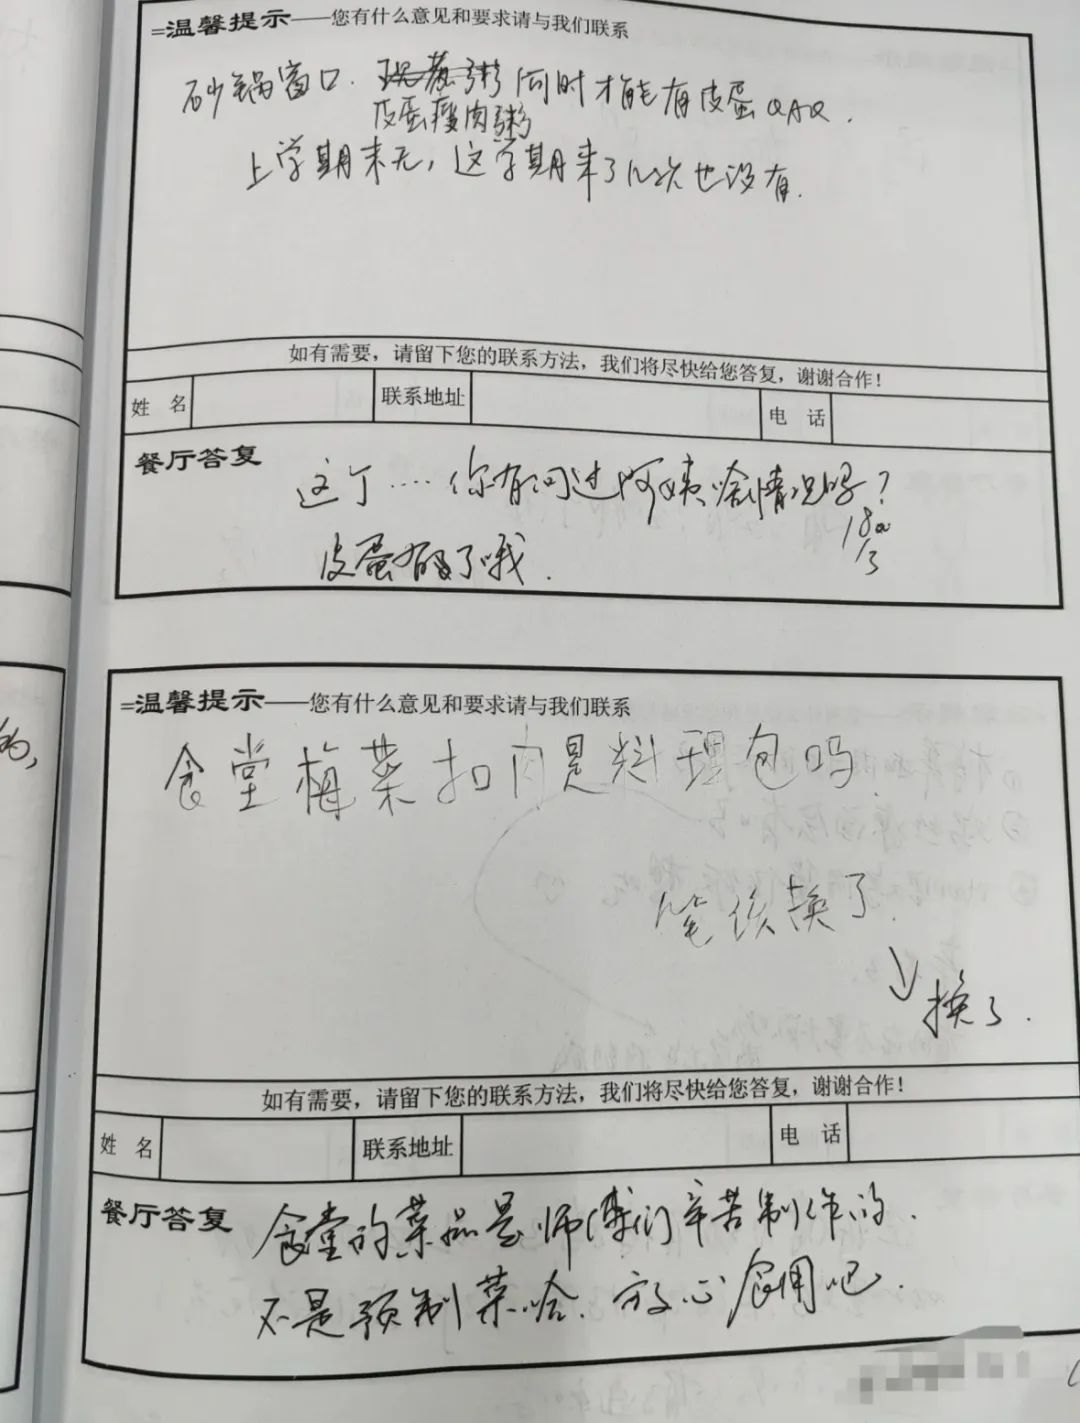 =温馨提示——您有什么意见和要求请与我们联系
砂锅窗口.
皮蛋瘦肉粥
何时才能有皮蛋QAQ.
上学期末无,这学期来了几次也没有.
如有需要,请留下您的联系方法,我们将尽快给您答复,谢谢合作!
姓 名 联系地址 电 话
餐厅答复
这个····你有问过阿姨啥情况吗?
皮蛋有了哦.
=温馨提示——您有什么意见和要求请与我们联系
食堂梅菜扣肉是料理包吗
笔该换了.
换了.
如有需要,请留下您的联系方法,我们将尽快给您答复,谢谢合作!
姓 名 联系地址 电 话
餐厅答复
食堂的菜品是师傅们辛苦制作的.
不是预制菜哈.放心食用吧.